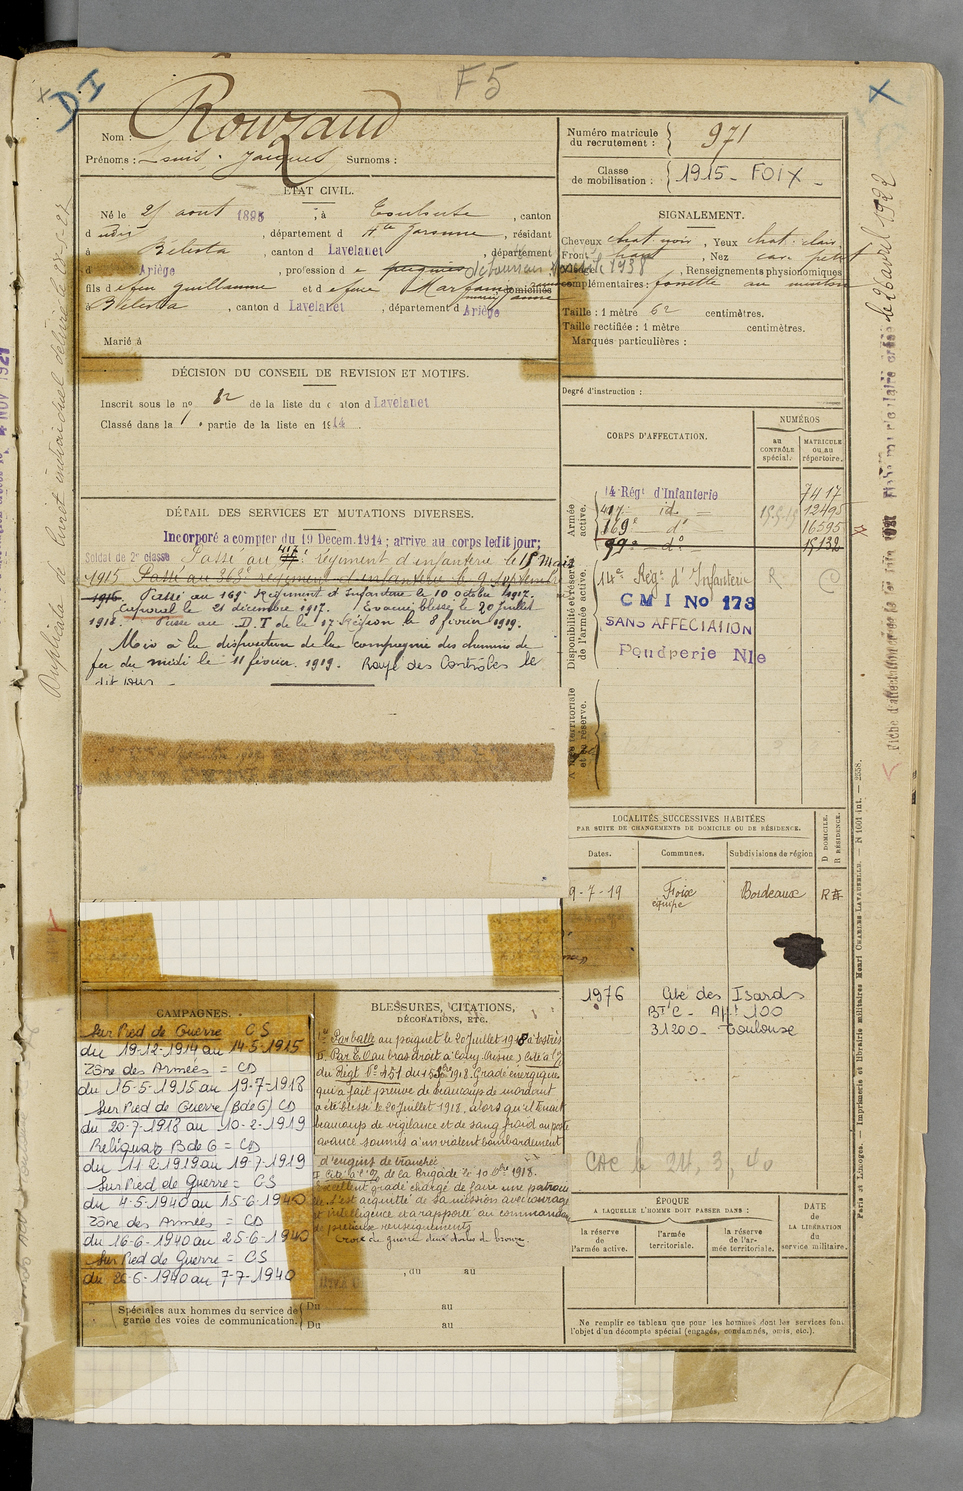 F5
DI
X
X
Nom : Rouzaud
Prénoms : Louis. Jacques Surnoms :
Numéro matricule du recrutement : 971
Classe de mobilisation : 1915 - FOIX -
ÉTAT CIVIL.
Né le 25 août 1895, à Toulouse, canton
d udit, département d Hte Garonne, résidant
à Bélesta, canton d Lavelanet, département
d Ariège, profession d
fils d e feu Guillaume et d e feue domiciliés
à Bélesta, canton d Lavelanet, département d Ariège
Marié à
SIGNALEMENT.
Cheveux chat. noir, Yeux chat. clair.
Front, Nez
1938, Renseignements physionomiques
complémentaires : fossette au menton
Taille : 1 mètre 62 centimètres.
Taille rectifiée : 1 mètre centimètres.
Marques particulières :
Degré d'instruction :
DÉCISION DU CONSEIL DE REVISION ET MOTIFS.
Inscrit sous le no 82 de la liste du canton d Lavelanet
Classé dans la 1e partie de la liste en 1914
CORPS D'AFFECTATION.
NUMÉROS
au CONTRÔLE spécial.
MATRICULE ou au répertoire.
Armée active.
14 Régt d'Infanterie 7417
417e id = 12495
169e do 16595
99e do 15132
DÉTAIL DES SERVICES ET MUTATIONS DIVERSES.
Incorporé a compter du 19 Decem. 1914 ; arrive au corps ledit jour;
Soldat de 2e classe Passé au 417 régiment d'infanterie le 15 Mai
1915 Passé au 363e régiment d'infanterie le 9 septembre
1916. Passé au 169e Régiment d'Infanterie le 10 octobre 1917.
Caporal le 21 décembre 1917. Evacué blessé le 20 Juillet
1918. Passé au D.T de la 17 Région le 8 février 1919.
Mis à la disposition de la compagnie des chemins de
fer du midi le 11 février 1919. Rayé des Contrôles le
dit jour
Disponibilité et réserve de l'armée active.
14e Régt d'Infanterie R
C M I No 173
SANS AFFECTATION
Poudrerie Nle
Armée territoriale et sa réserve.
LOCALITÉS SUCCESSIVES HABITÉES
PAR SUITE DE CHANGEMENTS DE DOMICILE OU DE RÉSIDENCE.
Dates. Communes. Subdivisions de région
D DOMICILE. R RÉSIDENCE.
9-7-19 Foix Bordeaux R
équipe
1976 Cité des Izards
Bt C - Apt 100
31200 - Toulouse
CAMPAGNES.
Sur Pied de Guerre CS
du 19-12-1914 au 14-5-1915
Zône des Armées = CD
du 15-5-1915 au 19-7-1918
Sur Pied de Guerre (B de G) CD
du 20-7-1918 au 10-2-1919
Reliquat B de G = CD
du 11-2-1919 au 19-7-1919
Sur Pied de Guerre = CS
du 4-5-1940 au 15-6-1940
Zône des Armées = CD
du 16-6-1940 au 25-6-1940
Sur Pied de Guerre = CS
du 26-6-1940 au 7-7-1940
BLESSURES, CITATIONS,
DÉCORATIONS, ETC.
Par balle au poignet le 20 juillet 1918
Par E.O au bras droit
du Régt No 451 du 1918. Gradé énergique
qui a fait preuve de beaucoup de mordant
a été blessé le 20 Juillet 1918. alors qu'il tenait
beaucoup de vigilance et de sang froid au poste
avancé soumis à un violent bombardement
d'engins de tranchée
de la Brigade le 10 1918.
Excellent gradé chargé de faire une patrouille
s'est acquitté de sa mission avec courage
et intelligence et a rapporté au commandement
de précieux renseignements
Croix de guerre deux étoiles de bronze.
, du au
Spéciales aux hommes du service de garde des voies de communication.
Du au
Du au
CAC le 24, 3, 40
ÉPOQUE
A LAQUELLE L'HOMME DOIT PASSER DANS :
la réserve de l'armée active.
l'armée territoriale.
la réserve de l'armée territoriale.
DATE de LA LIBÉRATION du service militaire.
Ne remplir ce tableau que pour les hommes dont les services font
l'objet d'un décompte spécial (engagés, condamnés, omis, etc.).
Duplicata de livret individuel délivré le
le 26 avril 1922
Paris et Limoges. — Imprimerie et librairie militaires Henri CHARLES-LAVAUZELLE. — N 1601 int. — 2558.